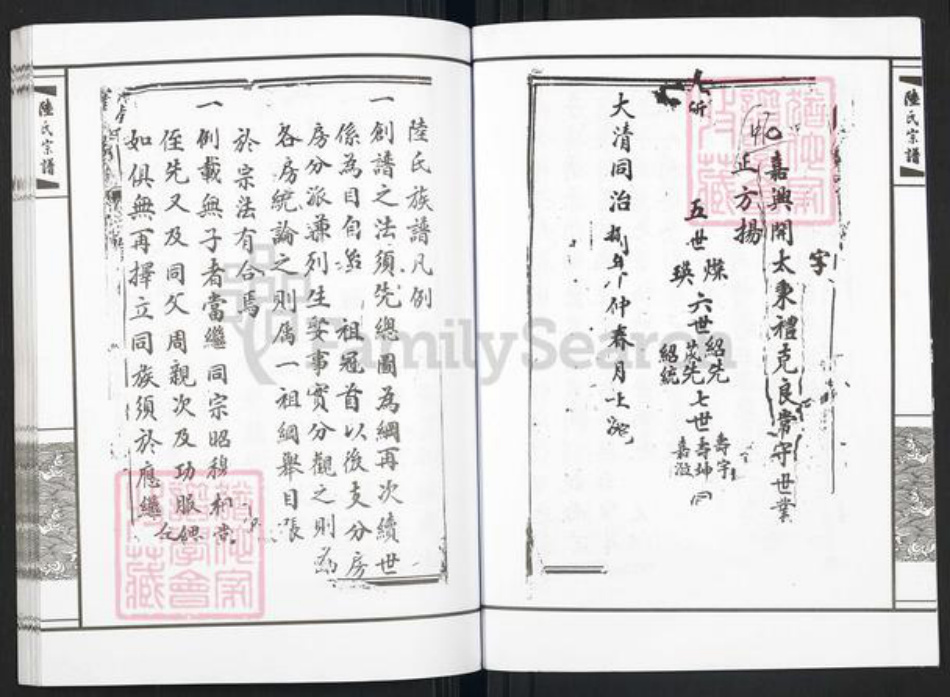 陸氏宗譜
字
嘉興開太秉禮克良常守世業
正方揚
五世 燦 瑛 六世 紹先 茂先 紹統 七世 壽宇 壽坤 嘉淑 同
大清同治捌年仲春月上浣
陸氏族譜凡例
一創譜之法須先總圖為綱再次續世
係為目自始祖冠首以後支分房
房分派兼列生娶事實分觀之則為
各房統論之則爲一祖綱舉目張
於宗法有合焉
一例載無子者當繼同宗昭穆相當
侄先又及同父周親次及功服緦
如俱無再擇立同族須於應繼之
陸氏宗譜
FamilySearch